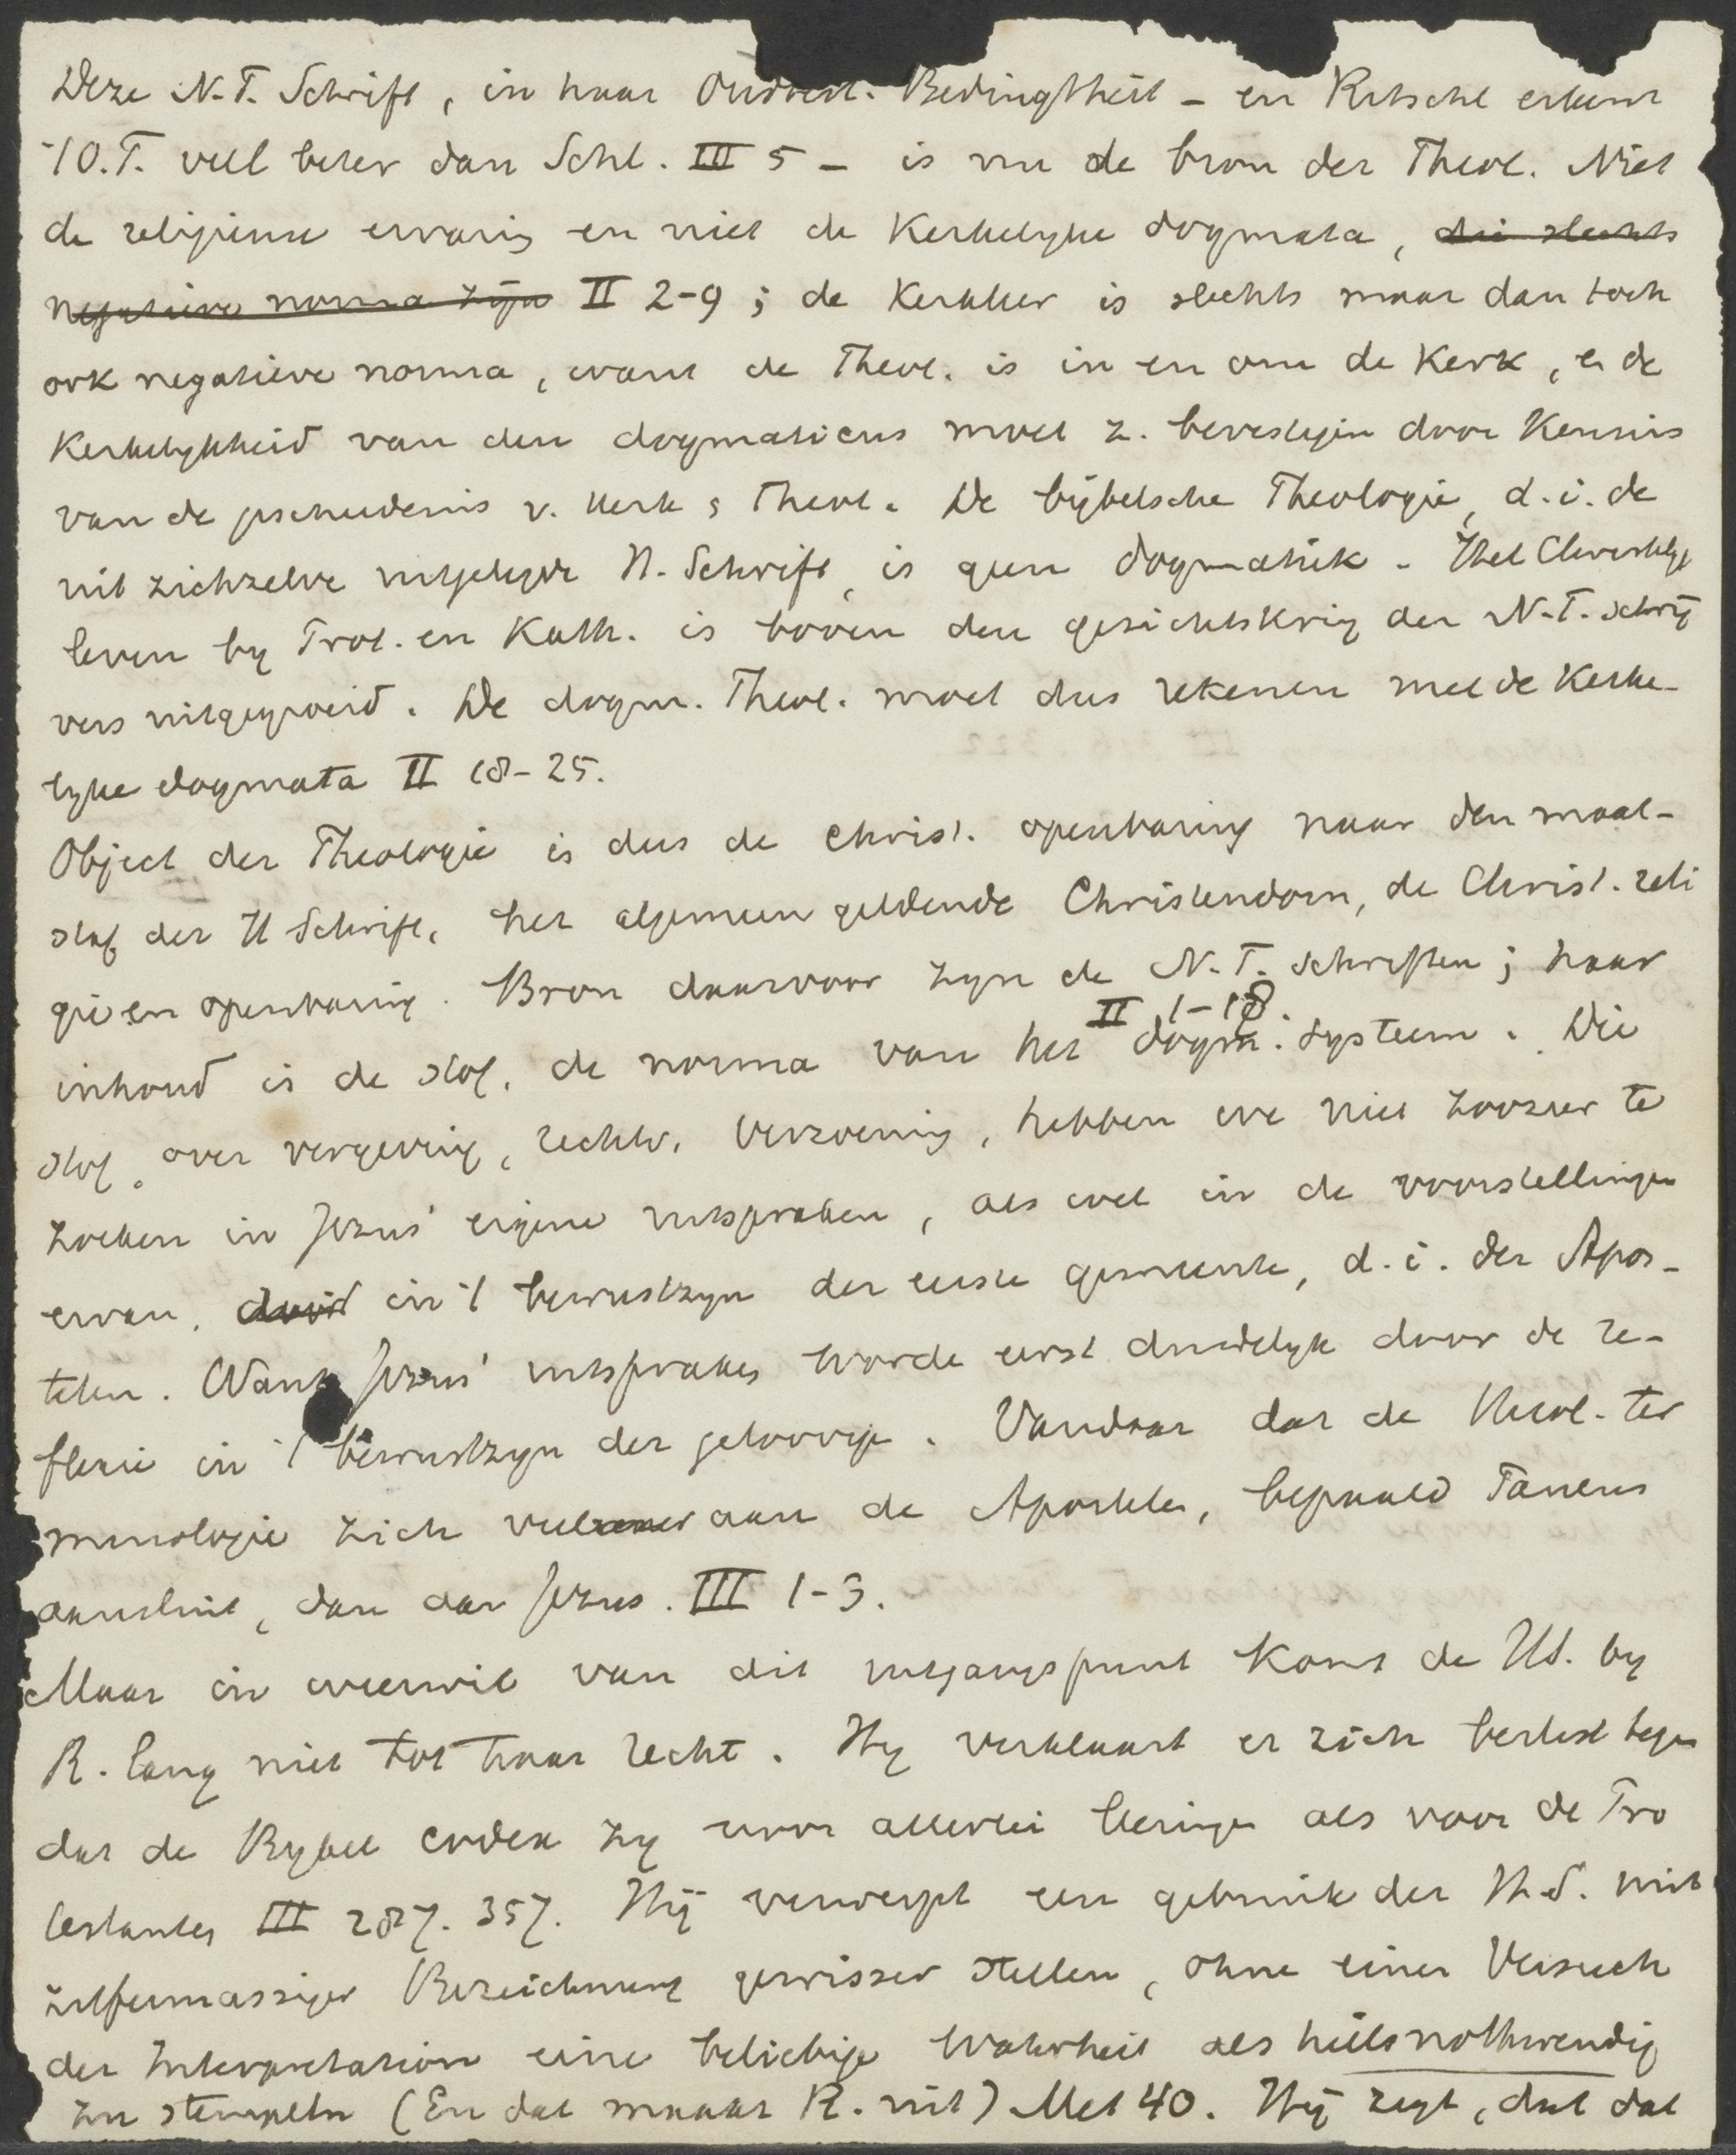 Deze N.T. Schrift, in haar Oudtest. Bedingtheit – en Ritschl erkent
't O.T. veel beter dan Schl. III 5 – is nu de bron der Theol. Niet
de religieuse ervaring en niet de Kerkelyke dogmata, die slechts
negatieve norma zijn II 2-9; de Kerkleer is slechts maar dan toch
ook negatieve norma, want de Theol. is in en om de Kerk, en de
Kerkelykheid van den dogmaticus moet z. bevestigen door Kennis
van de geschiedenis v. Kerk & Theol. De bijbelsche Theologie, d.i. de
uit zichzelve uitgelegde H. Schrift, is geen dogmatiek. Het Christelyk
leven by Prot. en Kath. is boven den gezichtskring der N.T. schrij
vers uitgegroeid. De dogm. Theol. moet dus rekenen met de Kerke-
lyke dogmata II 18-25.
Object der Theologie is dus de Christ. openbaring naar den maat-
staf der H Schrift, het algemeen geldende Christendom, de Christ. reli
gie en openbaring. Bron daarvoor zyn de N.T. schriften; haar
inhoud is de stof, de norma van het dogm. systeem. II 1-18. Die
stof, over vergeving, rechtv. verzoening, hebben we niet zoozeer te
zoeken in Jezus' eigene uitspraken, als wel in de voorstellingen
ervan, in 't bewustzyn der eerste gemeente, d.i. der Apos-
telen. Want Jezus' uitspraken worde eerst duidelyk door de re-
flexie in 't bewustzyn der geloovige. Vandaar dat de theol. ter
minologie zich veel aan de Apostelen, bepaald Paulus
aansluit, dan aan Jezus. III 1-3.
Maar in weerwil van dit uitgangspunt komt de HS. by
R. lang niet tot haar recht. Hy verklaart er zich beslist tegen
dat de Bybel codex zy voor allerlei leeringen als voor de Pro
testanten III 287. 357. Hij verwerpt een gebruik der H.S. mit
zifermassiger Bezeichnung gewisser Stellen, ohne einen Versuch
der Interpretation eine beliebige Wahrheit als heilsnothwendig
zu stempeln (En dat maakt R. uit) Met 40. Hij zegt, dat dat